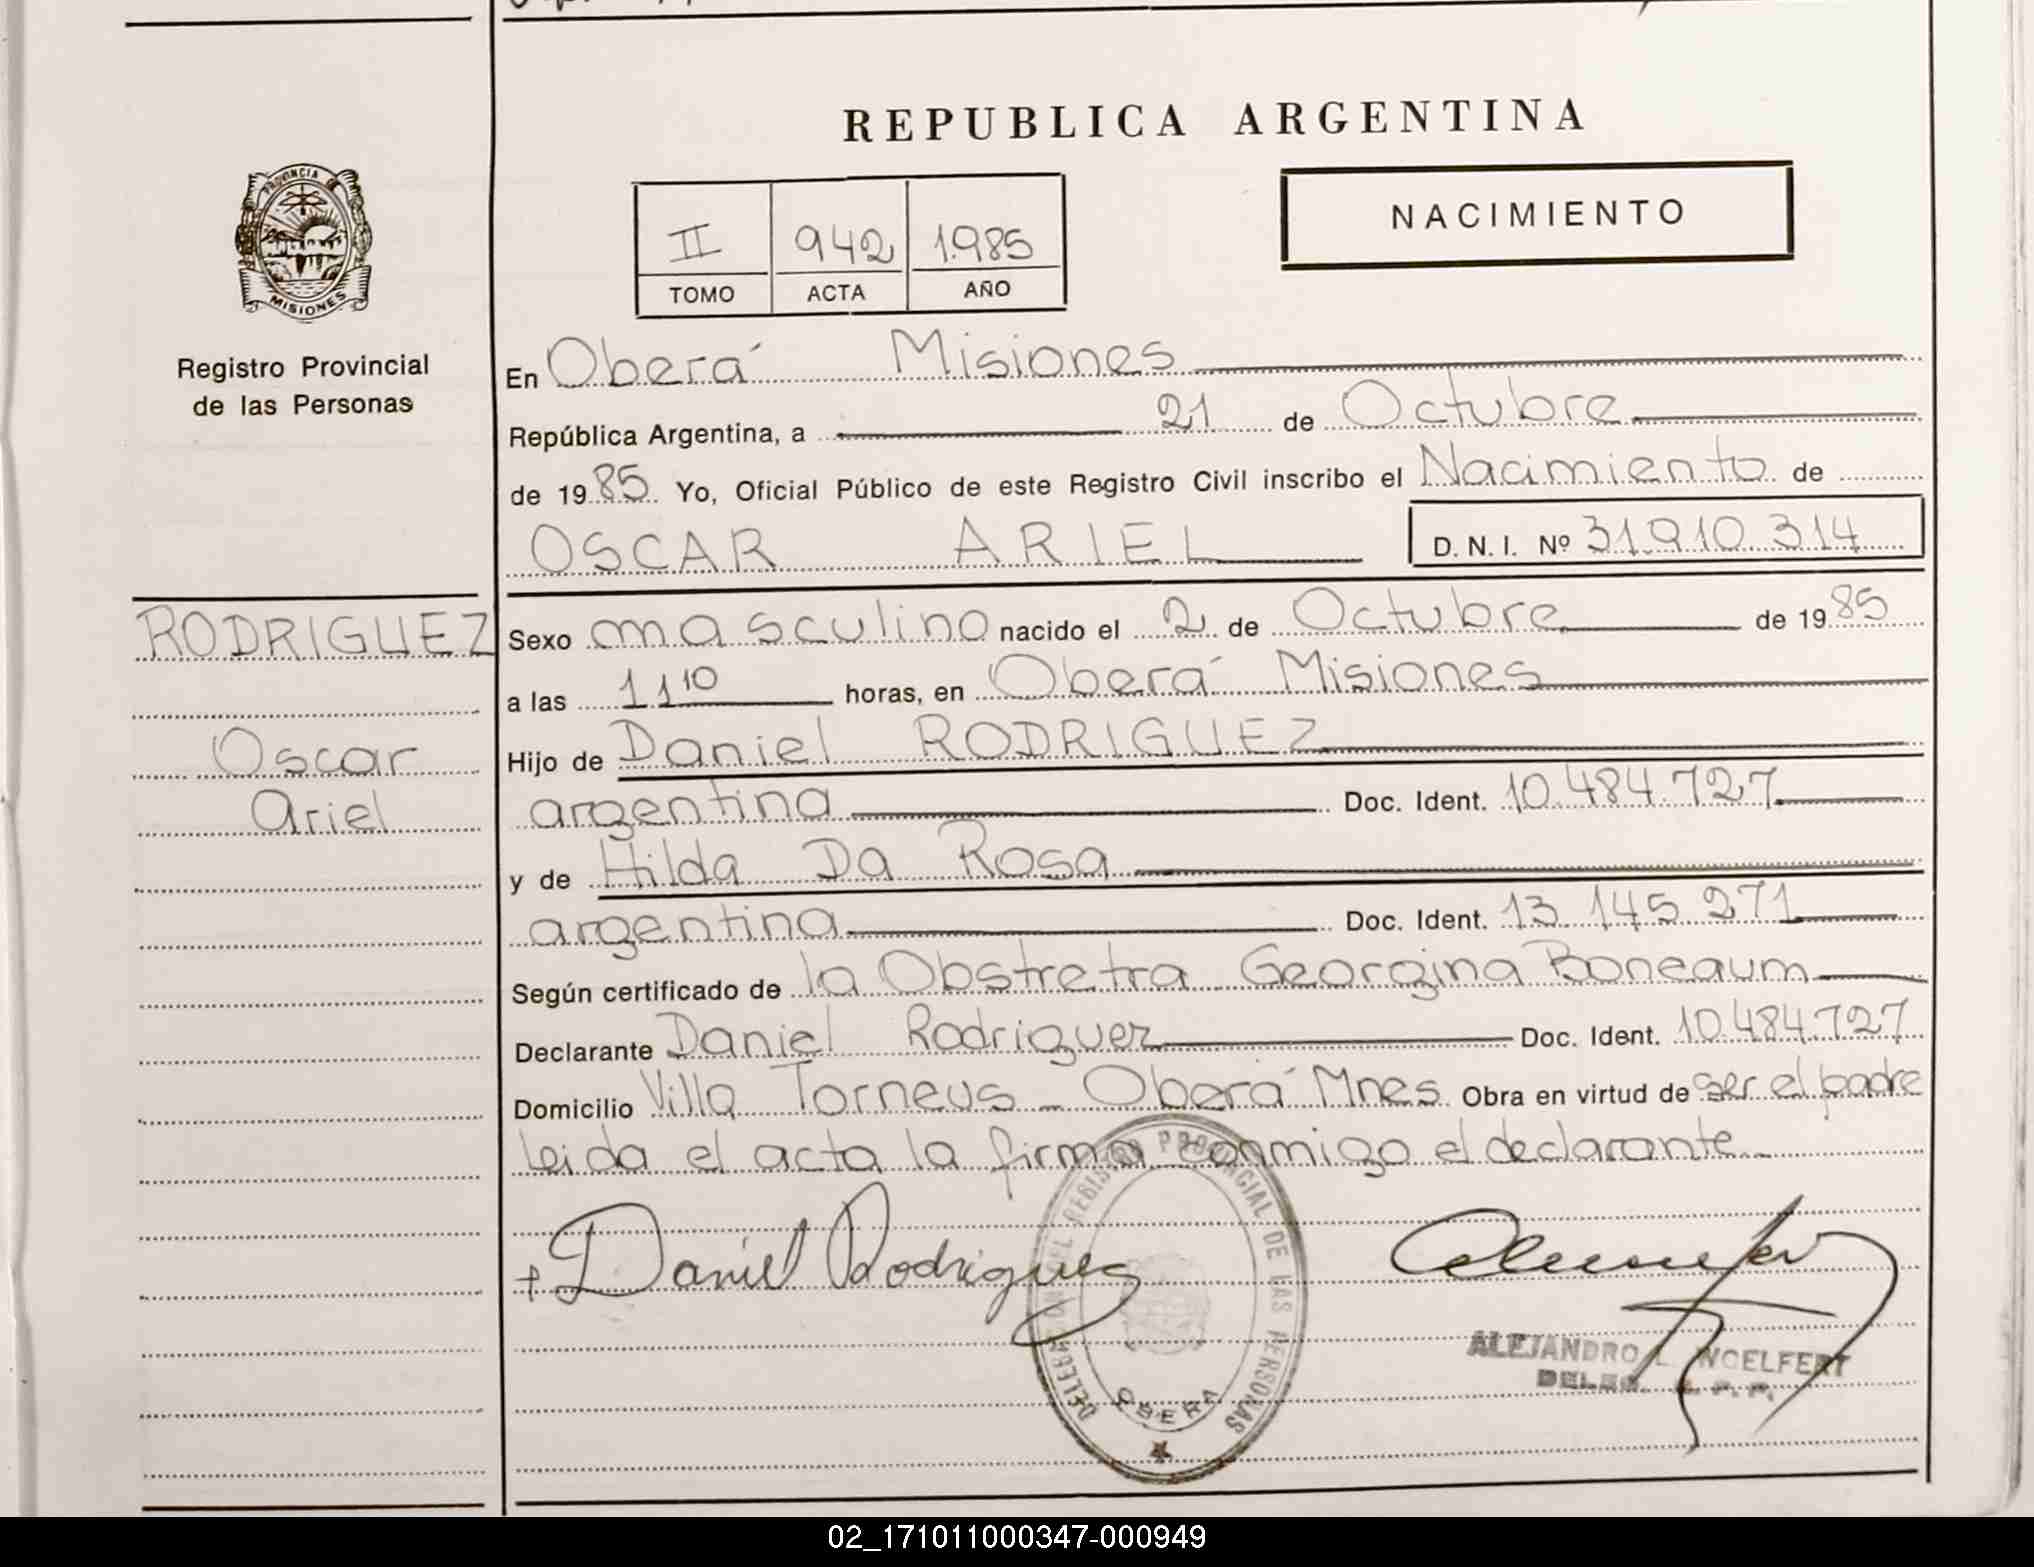 REPUBLICA ARGENTINA
PROVINCIA DE
MISIONES
Registro Provincial
de las Personas
II 942 1.985
TOMO ACTA AÑO
NACIMIENTO
En Oberá Misiones
República Argentina, a 21 de Octubre
de 1985 Yo, Oficial Público de este Registro Civil inscribo el Nacimiento de
OSCAR ARIEL D. N. I. Nº 31.910.314
RODRIGUEZ
Oscar
Ariel
Sexo masculino nacido el 2 de Octubre de 1985
a las 11 10 horas, en Oberá Misiones
Hijo de Daniel RODRIGUEZ
argentina Doc. Ident. 10.484.727
y de Hilda Da Rosa
argentina Doc. Ident. 13.145.271
Según certificado de la Obstretra Georgina Boneaum
Declarante Daniel Rodriguez Doc. Ident. 10.484.727
Domicilio Villa Torneus - Oberá Mnes Obra en virtud de ser el padre
leida el acta la firma conmigo el declarante
Daniel Rodriguez
DELEGACION DEL REGISTRO PROVINCIAL DE LAS PERSONAS
OBERA
ALEJANDRO L. WOELFERT
DELEG. R. P. P.
02_171011000347-000949